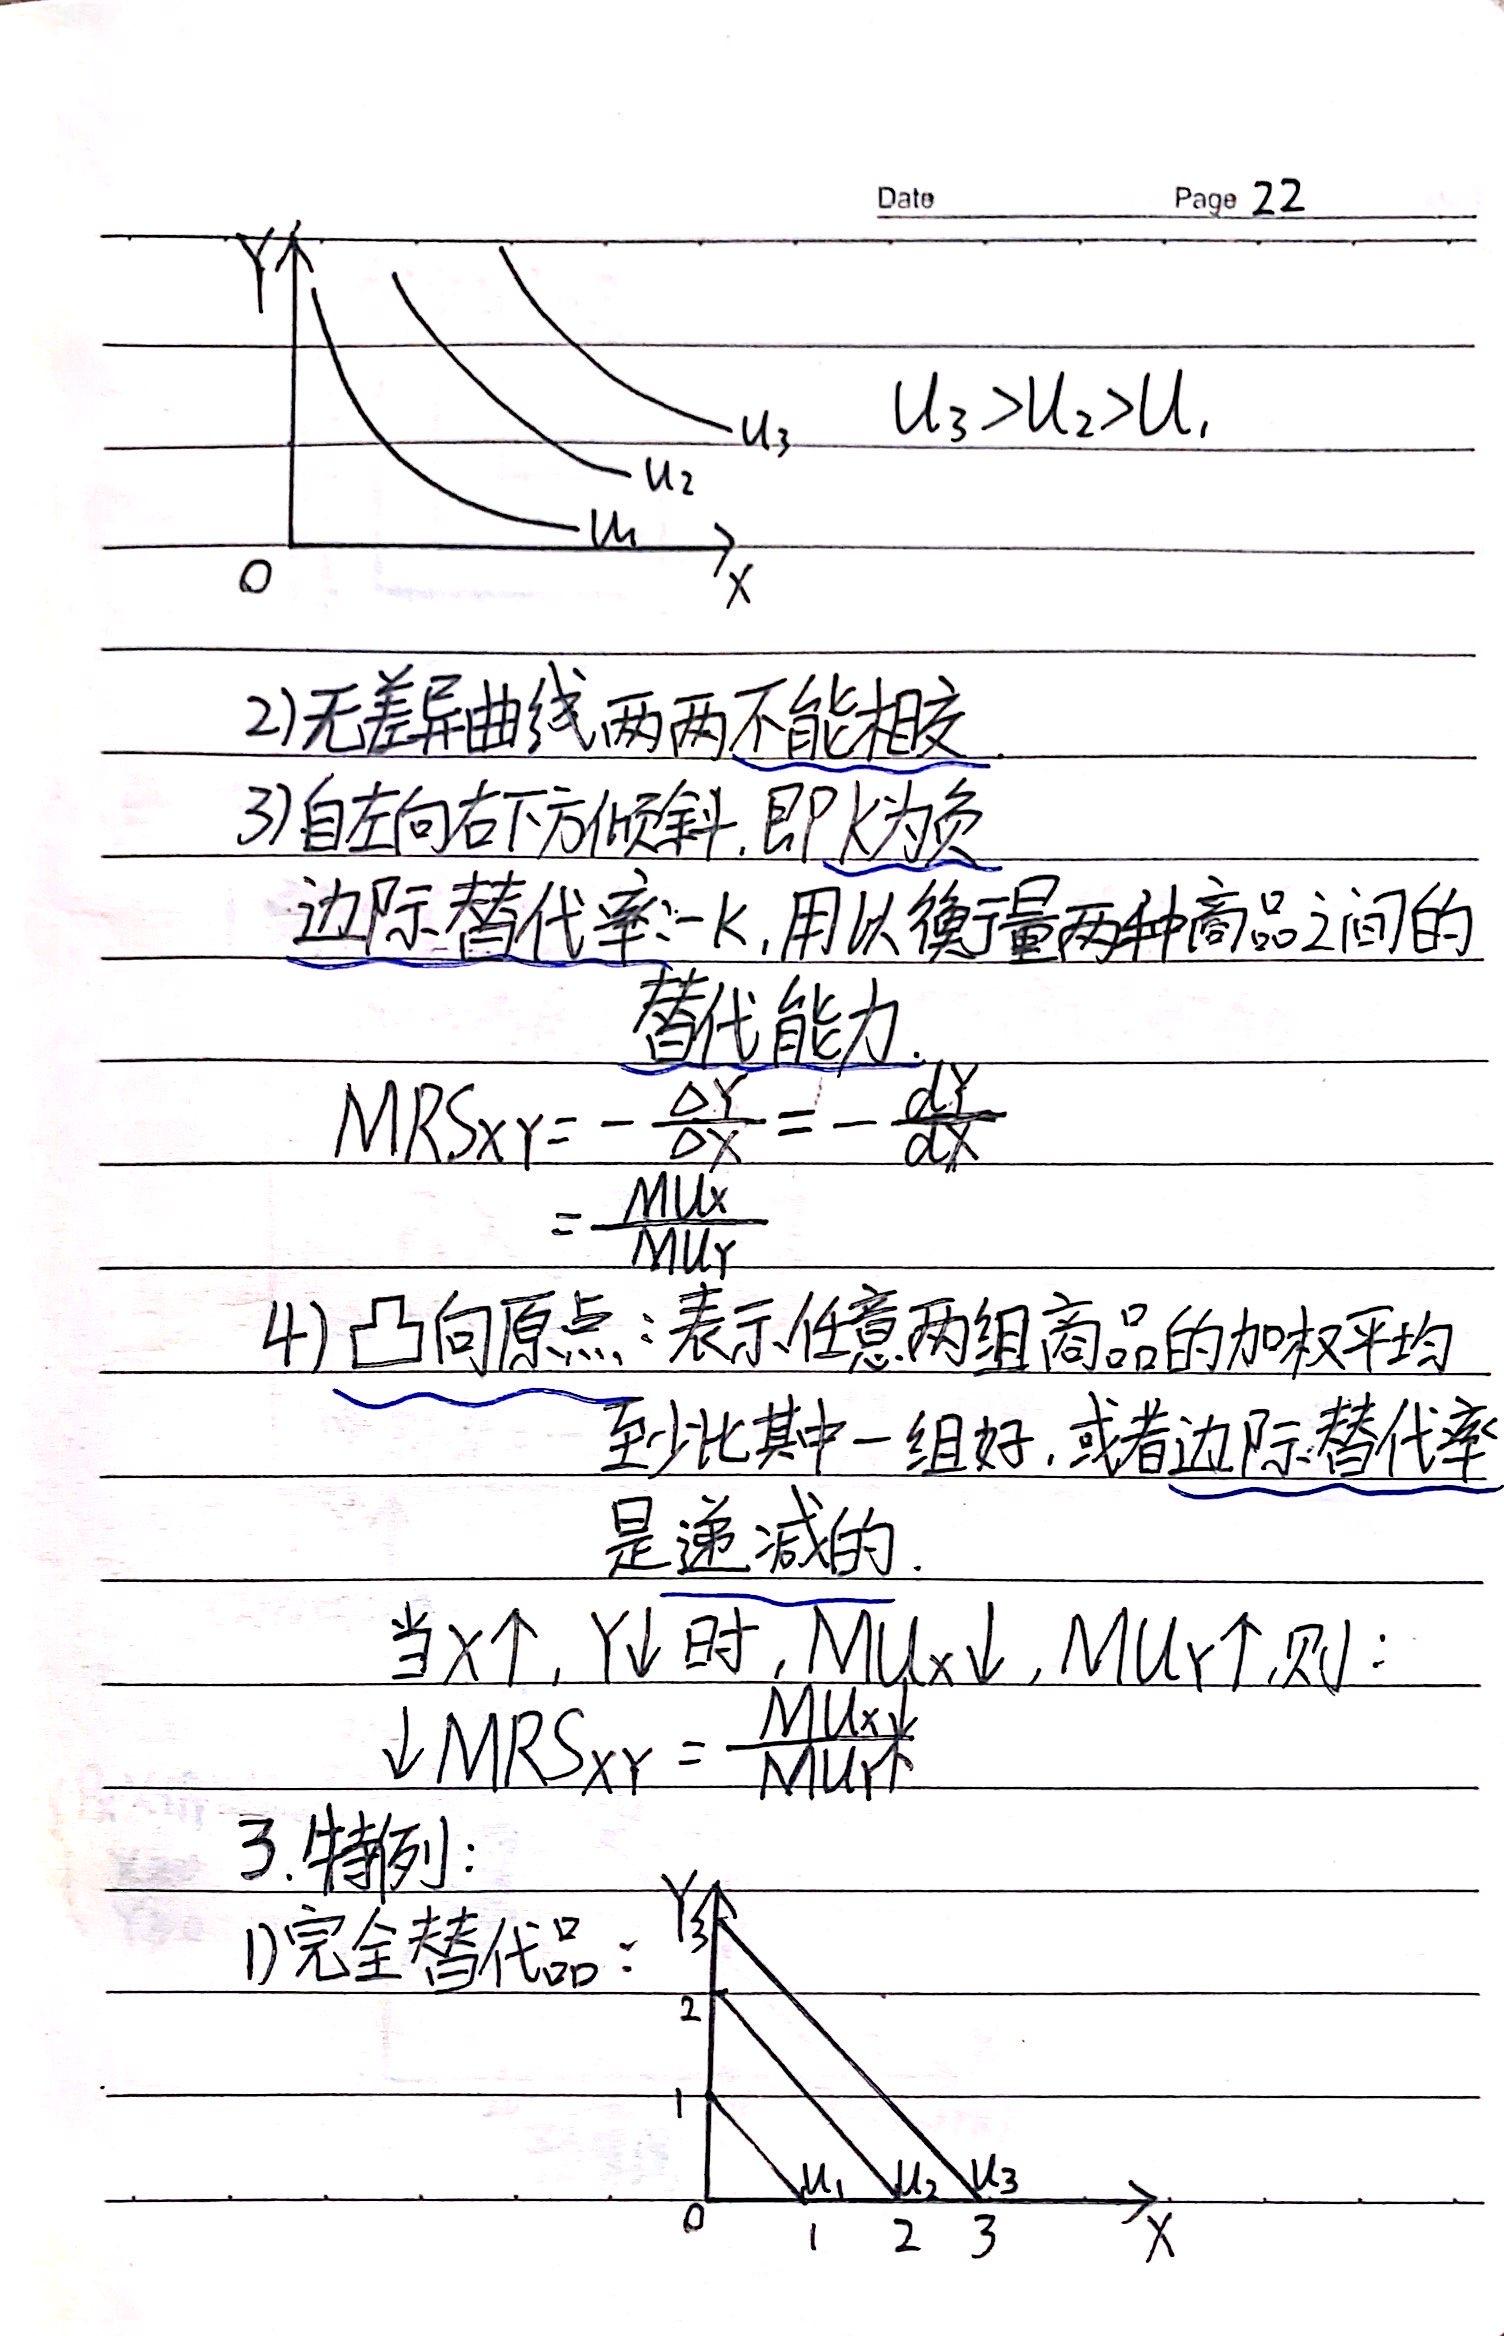 Date Page 22
Y
U₃>U₂>U₁
u₃
u₂
u₁
O X
2)无差异曲线两两不能相交.
3)自左向右下方倾斜.即K为负
边际替代率:-K,用以衡量两种商品之间的
替代能力.
MRSxY=-ΔY/ΔX=-dY/dX
=MUx/MUY
4)凸向原点:表示任意两组商品的加权平均
至少比其中一组好.或者边际替代率
是递减的.
当X↑,Y↓时,MUx↓,MUY↑,则:
↓MRSXY=MUx↓/MUY↑
3.特例:
1)完全替代品:
Y
3
2
1
u₁ u₂ u₃
0 1 2 3 X